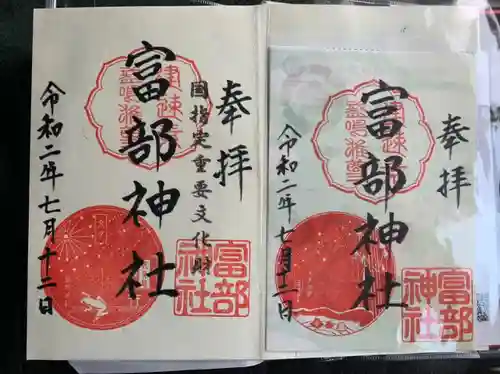 奉拝
国指定重要文化財
富部神社
令和二年七月十二日
富部神社
奉拝
富部神社
令和二年七月十二日
富部神社